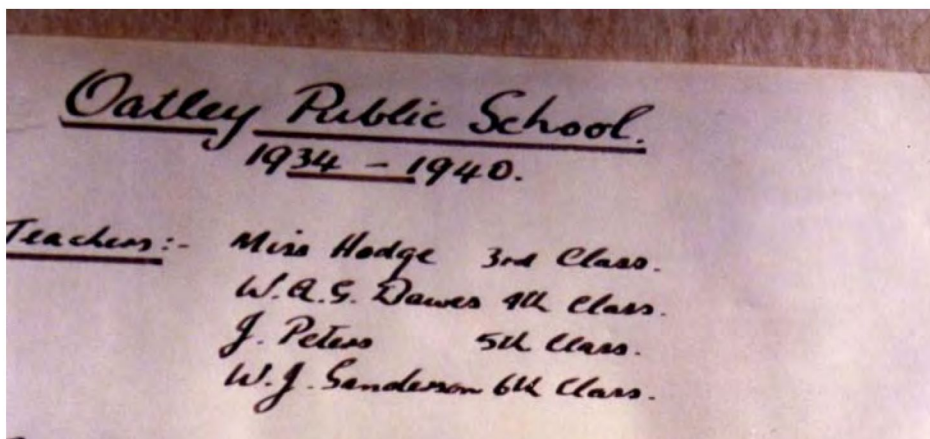 Oatley Public School.
1934 - 1940.
Teachers:- Miss Hodge 3rd Class.
W.A.G. Dawes 4th Class.
J. Peters 5th Class.
W.J. Sanderson 6th Class.